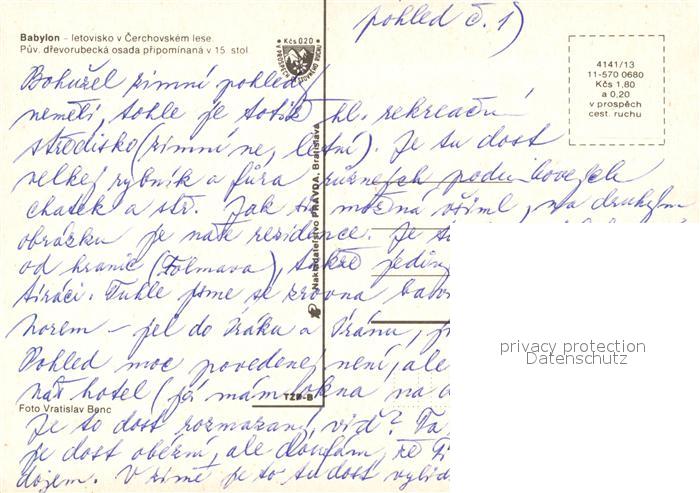 pohled č. 1)
Babylon – letovisko v Čerchovském lese.
Pův. dřevorubecká osada připomínaná v 15. stol.
Kčs 0,20
4141/13
11-570 0680
Kčs 1,80
a 0,20
v prospěch
cest. ruchu
Bohužel zimní pohledy
neměli, tohle je totiž hl. rekreační
středisko (zimní ne, letní). Je tu dost
velkej rybník a fůra různejch podnikovejch
chatek a stř. Jak sis možná všiml, na druhým
obrázku je naše rezidence. Je
od hranic (Folmava), takže
tiráci. Tuhle jsme se zrovna
Norem – jel do Iráku a Iránu,
Pohled moc povedenej není, ale
náš hotel (já mám okna na
Je to dost rozmazaný, viď?
je dost obézní, ale doufám, že
dojem. V zimě je to tu dost
Nakladatelství PRAVDA, Bratislava
TZP-B
Foto Vratislav Benc
privacy protection
Datenschutz